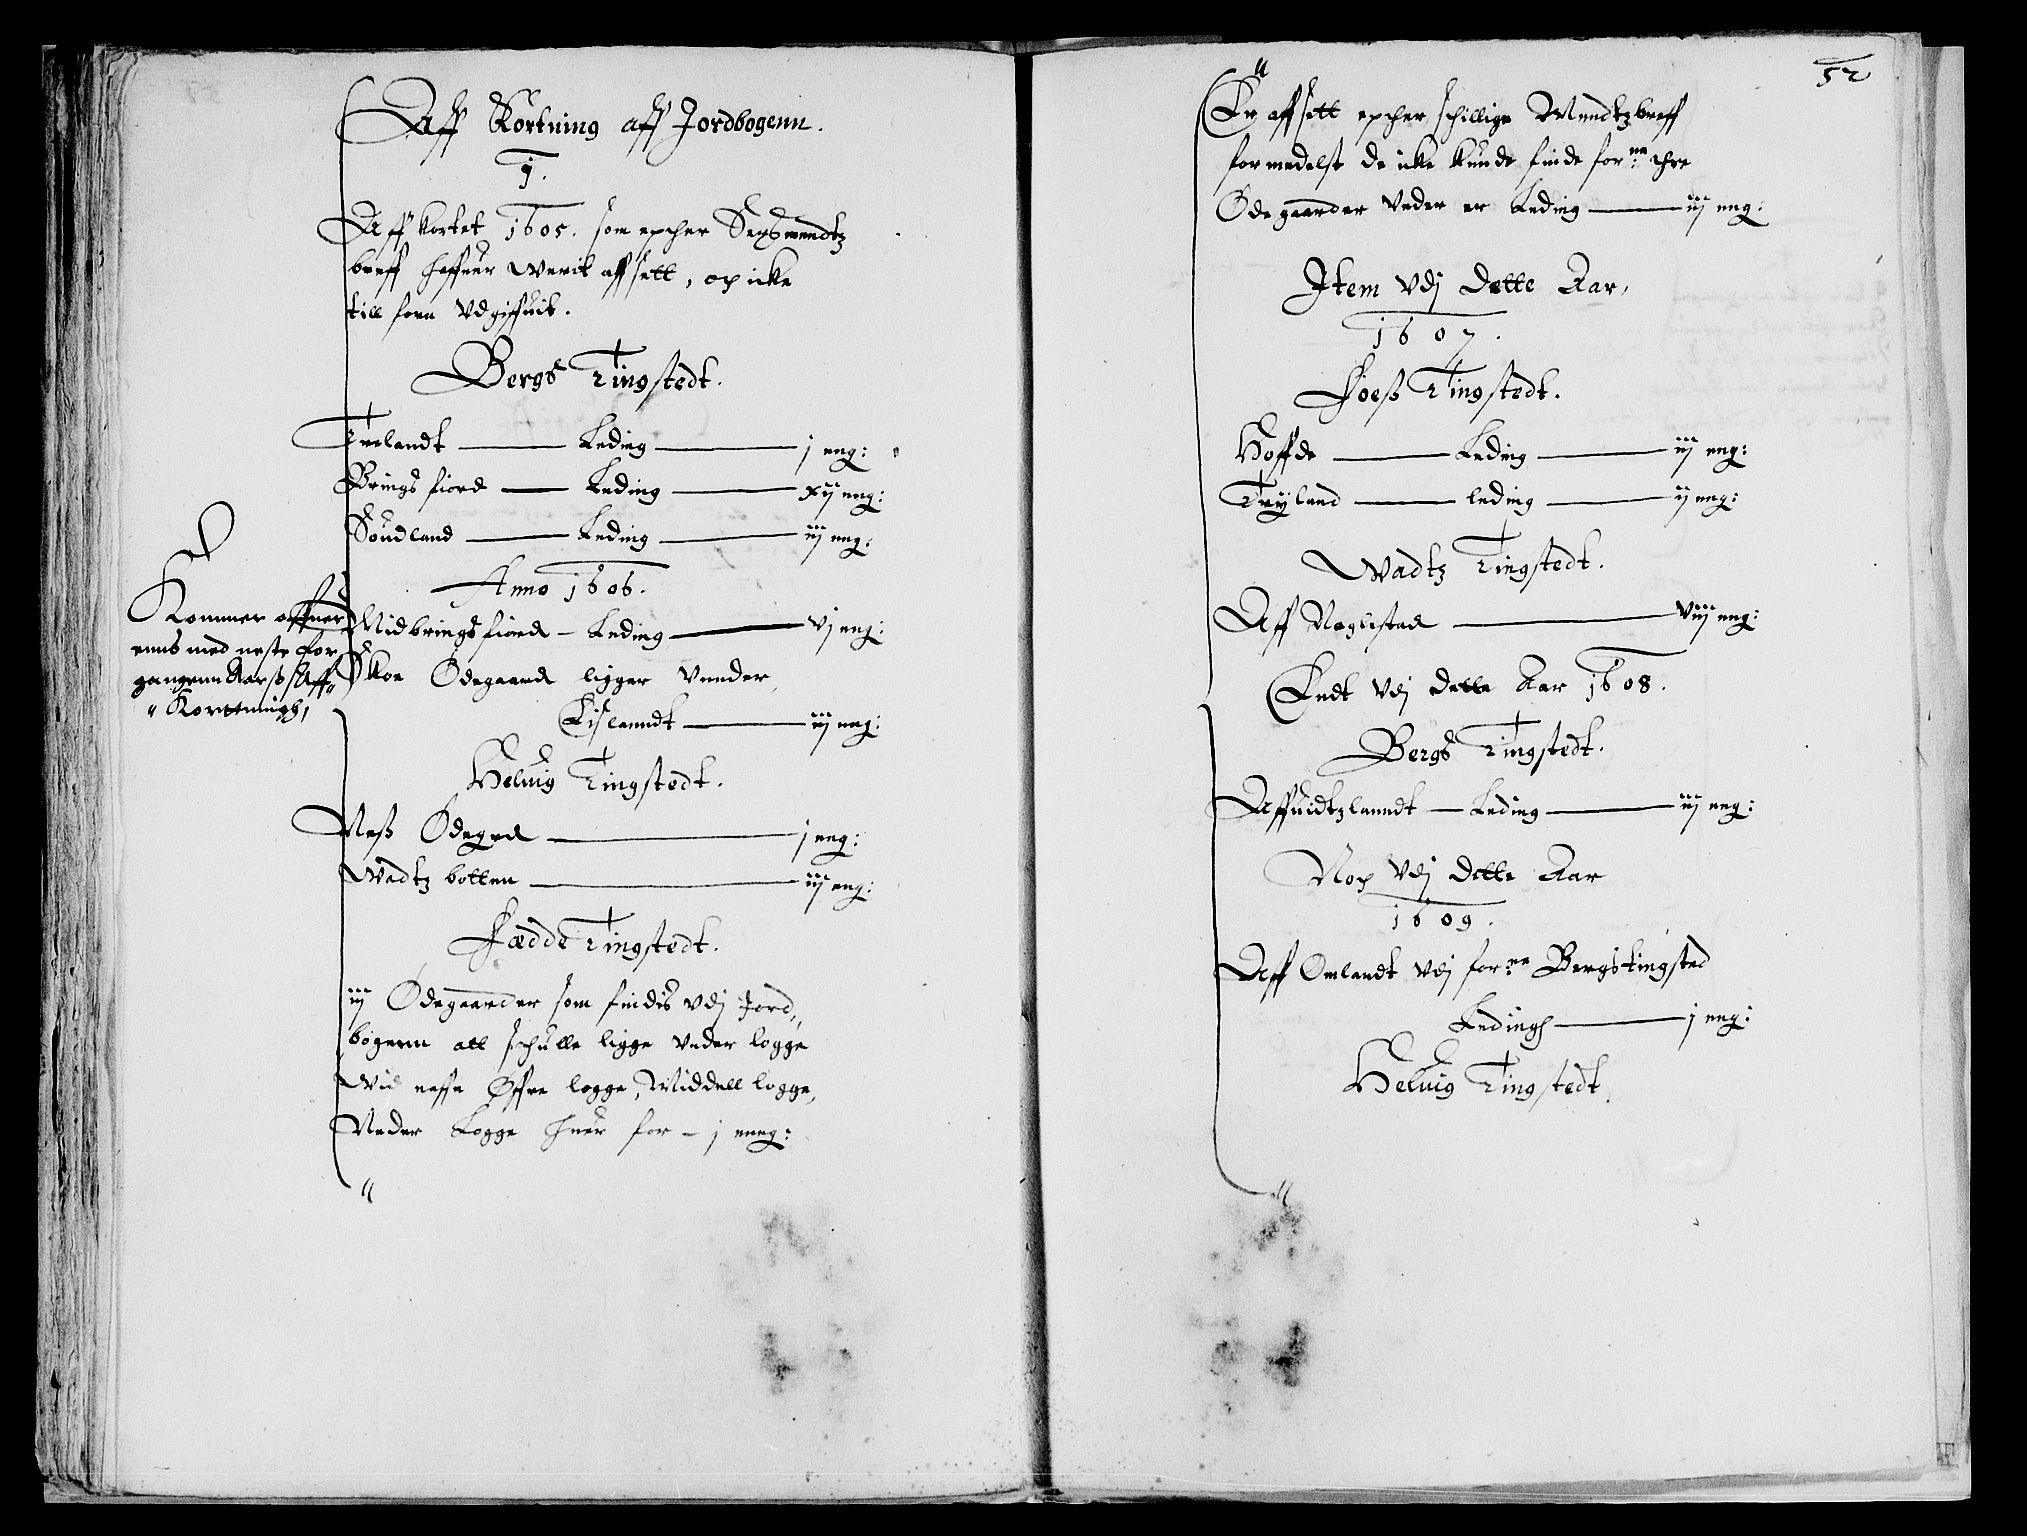 Aff Kortning aff Jordbogenn.
j.
Aff kortet 1605. som epther Sexsmendtz
breff haffuer werit affsett, og icke
till forn vdgiffuit.
Bergs Tingstedt.
Trelandt — Leding — j eng:
Brings fiord — Leding — xij eng:
Soudland — Leding — iij eng:
Anno 1606.
Midbrings fiord — Leding — vj eng:
Skoe Ødegaard ligger vnnder
Eislanndt — iij eng:
Heluig Tingstedt.
Neß Ødegrd — j eng:
Wadtz botten — iij eng:
Fædde Tingstedt.
iij Ødegaarder som findis vdj Jord,
bogenn att schulle ligge vnder logge
Wid neffn Øffre logge, Middell logge,
Neder Logge huer for — j eneg:
Kommer offuer
enns med neste for
gangenn Aarß Aff
Kortningh,
52
Er affsett epther schillige Mendtz breff
formedelst de icke kunde finde forne thre
Ødegaarder vnder er Leding — iij eng:
Item vdj dette Aar,
1607.
Fioeß Tingstedt.
Hoffde — Leding — iij eng:
Tryland — leding — ij eng:
Wadtz Tingstedt.
Aff Noglistad — viij eng:
Endt vdj dette Aar 1608.
Bergs Tingstedt.
Affuidtzlanndt — Leding — iij eng:
Nog vdj dette Aar
1609.
Aff Omlandt vdj forne Bergs tingsted
Ledingh — j eng:
Heluig Tingstedt.